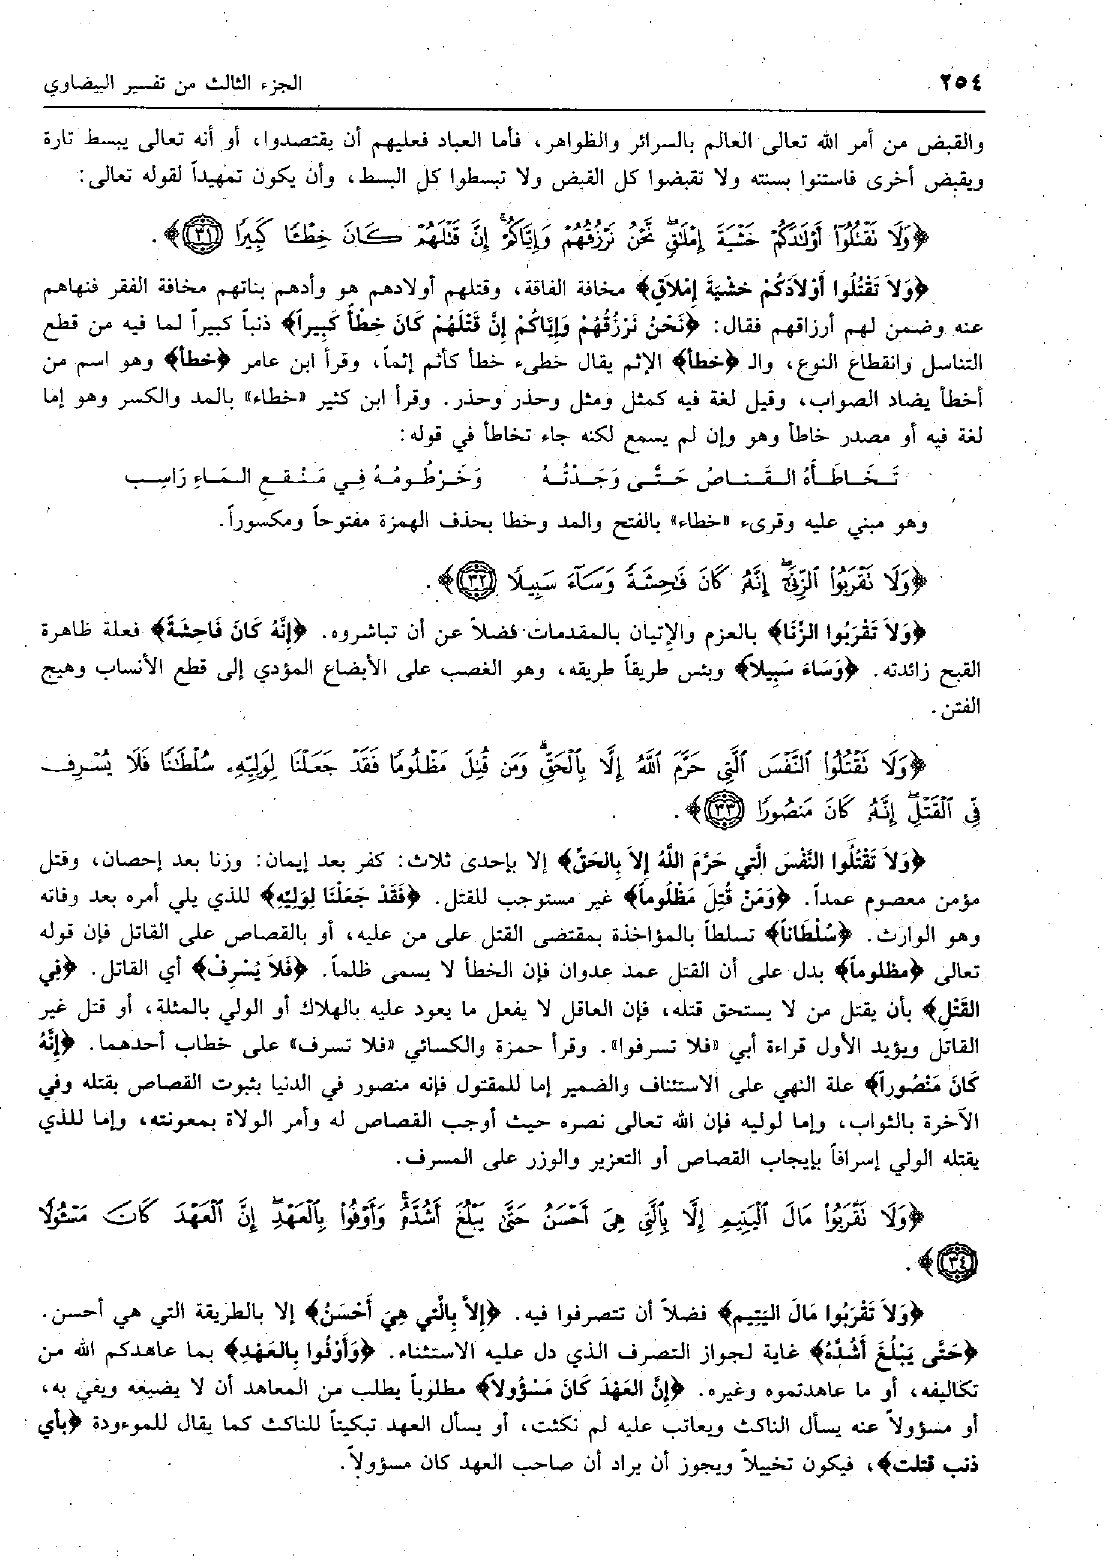 ٢٥٤ الجزء الثالث من تفسير البيضاوي
والقبض من أمر الله تعالى العالم بالسرائر والظواهر، فأما العباد فعليهم أن يقتصدوا، أو أنه تعالى يبسط تارة
ويقبض أخرى فاستنوا بسنته ولا تقبضوا كل القبض ولا تبسطوا كل البسط، وأن يكون تمهيداً لقوله تعالى:
﴿وَلَا نَقْنُلُوٓا۟ أَوْلَٰدَكُمْ خَشْيَةَ إِمْلَٰقٍ نَّحْنُ نَرْزُقُهُمْ وَإِيَّاكُمْ إِنَّ قَتْلَهُمْ كَانَ خِطْـًٔا كَبِيرًا ﴿٣١﴾﴾.
﴿وَلاَ تَقْتُلُوا أَوْلاَدَكُمْ خَشْيَةَ إِمْلاَقٍ﴾ مخافة الفاقة، وقتلهم أولادهم هو وأدهم بناتهم مخافة الفقر فنهاهم
عنه وضمن لهم أرزاقهم فقال: ﴿نَحْنُ نَرْزُقُهُمْ وَإِيَّاكُمْ إِنَّ قَتْلَهُمْ كَانَ خِطْأً كَبِيراً﴾ ذنباً كبيراً لما فيه من قطع
التناسل وانقطاع النوع، والـ ﴿خطأ﴾ الإثم يقال خطىء خطأ كأثم إثماً، وقرأ ابن عامر ﴿خطأ﴾ وهو اسم من
أخطأ يضاد الصواب، وقيل لغة فيه كمثل ومثل وحذر وحذر. وقرأ ابن كثير «خطاء» بالمد والكسر وهو إما
لغة فيه أو مصدر خاطأ وهو وإن لم يسمع لكنه جاء تخاطأ في قوله:
تَخَاطَأَهُ القَناصُ حَتَّى وَجَدْتُهُ وَخَرْطُومُهُ فِي مَنْقَعِ المَاءِ رَاسِب
وهو مبني عليه وقرىء «خطاء» بالفتح والمد وخطا بحذف الهمزة مفتوحاً ومكسوراً.
﴿وَلَا تَقْرَبُوا۟ ٱلزِّنَىٰٓ إِنَّهُۥ كَانَ فَٰحِشَةً وَسَآءَ سَبِيلًا ﴿٣٢﴾﴾.
﴿وَلاَ تَقْرَبُوا الزِّنَا﴾ بالعزم والإتيان بالمقدمات فضلاً عن أن تباشروه. ﴿إِنَّهُ كَانَ فَاحِشَةً﴾ فعلة ظاهرة
القبح زائدته. ﴿وَسَاءَ سَبِيلاً﴾ وبئس طريقاً طريقه، وهو الغصب على الأبضاع المؤدي إلى قطع الأنساب وهيج
الفتن.
﴿وَلَا تَقْتُلُوا۟ ٱلنَّفْسَ ٱلَّتِي حَرَّمَ ٱللَّهُ إِلَّا بِٱلْحَقِّ وَمَن قُتِلَ مَظْلُومًا فَقَدْ جَعَلْنَا لِوَلِيِّهِۦ سُلْطَٰنًا فَلَا يُسْرِف
فِّي ٱلْقَتْلِ إِنَّهُۥ كَانَ مَنصُورًا ﴿٣٣﴾﴾.
﴿وَلاَ تَقْتُلُوا النَّفْسَ الَّتِي حَرَّمَ اللَّهُ إِلاَ بِالحَقِّ﴾ إلا بإحدى ثلاث: كفر بعد إيمان: وزنا بعد إحصان، وقتل
مؤمن معصوم عمداً. ﴿وَمَنْ قُتِلَ مَظْلُوماً﴾ غير مستوجب للقتل. ﴿فَقَدْ جَعَلْنَا لِوَلِيِّهِ﴾ للذي يلي أمره بعد وفاته
وهو الوارث. ﴿سُلْطَاناً﴾ تسلطاً بالمؤاخذة بمقتضى القتل على من عليه، أو بالقصاص على القاتل فإن قوله
تعالى ﴿مظلوماً﴾ يدل على أن القتل عمد عدوان فإن الخطأ لا يسمى ظلماً. ﴿فَلاَ يُسْرِفْ﴾ أي القاتل. ﴿فِي
القَتْلِ﴾ بأن يقتل من لا يستحق قتله، فإن العاقل لا يفعل ما يعود عليه بالهلاك أو الولي بالمثلة، أو قتل غير
القاتل ويؤيد الأول قراءة أبي «فلا تسرفوا». وقرأ حمزة والكسائي «فلا تسرف» على خطاب أحدهما. ﴿إِنَّهُ
كَانَ مَنْصُوراً﴾ علة النهي على الاستئناف والضمير إما للمقتول فإنه منصور في الدنيا بثبوت القصاص بقتله وفي
الآخرة بالثواب، وإما لوليه فإن الله تعالى نصره حيث أوجب القصاص له وأمر الولاة بمعونته، وإما للذي
يقتله الولي إسرافاً بإيجاب القصاص أو التعزير والوزر على المسرف.
﴿وَلَا تَقْرَبُوا۟ مَالَ ٱلْيَتِيمِ إِلَّا بِٱلَّتِي هِيَ أَحْسَنُ حَتَّىٰ يَبْلُغَ أَشُدَّهُۥ وَأَوْفُوا۟ بِٱلْعَهْدِ إِنَّ ٱلْعَهْدَ كَانَ مَسْـُٔولًا
﴿٣٤﴾﴾.
﴿وَلاَ تَقْرَبُوا مَالَ اليَتِيمِ﴾ فضلاً أن تتصرفوا فيه. ﴿إِلاَّ بِالَّتِي هِيَ أَحْسَنُ﴾ إلا بالطريقة التي هي أحسن.
﴿حَتَّى يَبْلُغَ أَشُدَّهُ﴾ غاية لجواز التصرف الذي دل عليه الاستثناء. ﴿وَأَوْفُوا بِالعَهْدِ﴾ بما عاهدكم الله من
تكاليفه، أو ما عاهدتموه وغيره. ﴿إِنَّ العَهْدَ كَانَ مَسْؤُولاً﴾ مطلوباً يطلب من المعاهد أن لا يضيعه ويفي به،
أو مسؤولاً عنه يسأل الناكث ويعاتب عليه لم نكثت، أو يسأل العهد تبكيتاً للناكث كما يقال للموءودة ﴿بأي
ذنب قتلت﴾، فيكون تخييلاً ويجوز أن يراد أن صاحب العهد كان مسؤولاً.